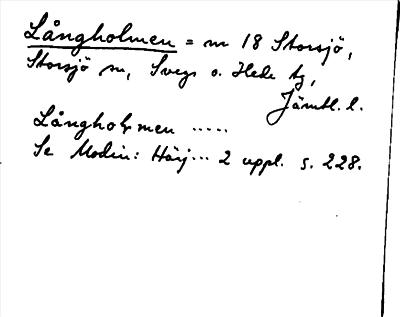 Långholmen = m 18 Storsjö,
Storsjö sn, Svegs o. Hede tg,
Jämtl. l.
Långholmen .....
Se Modin: Härj... 2 uppl. s. 228.